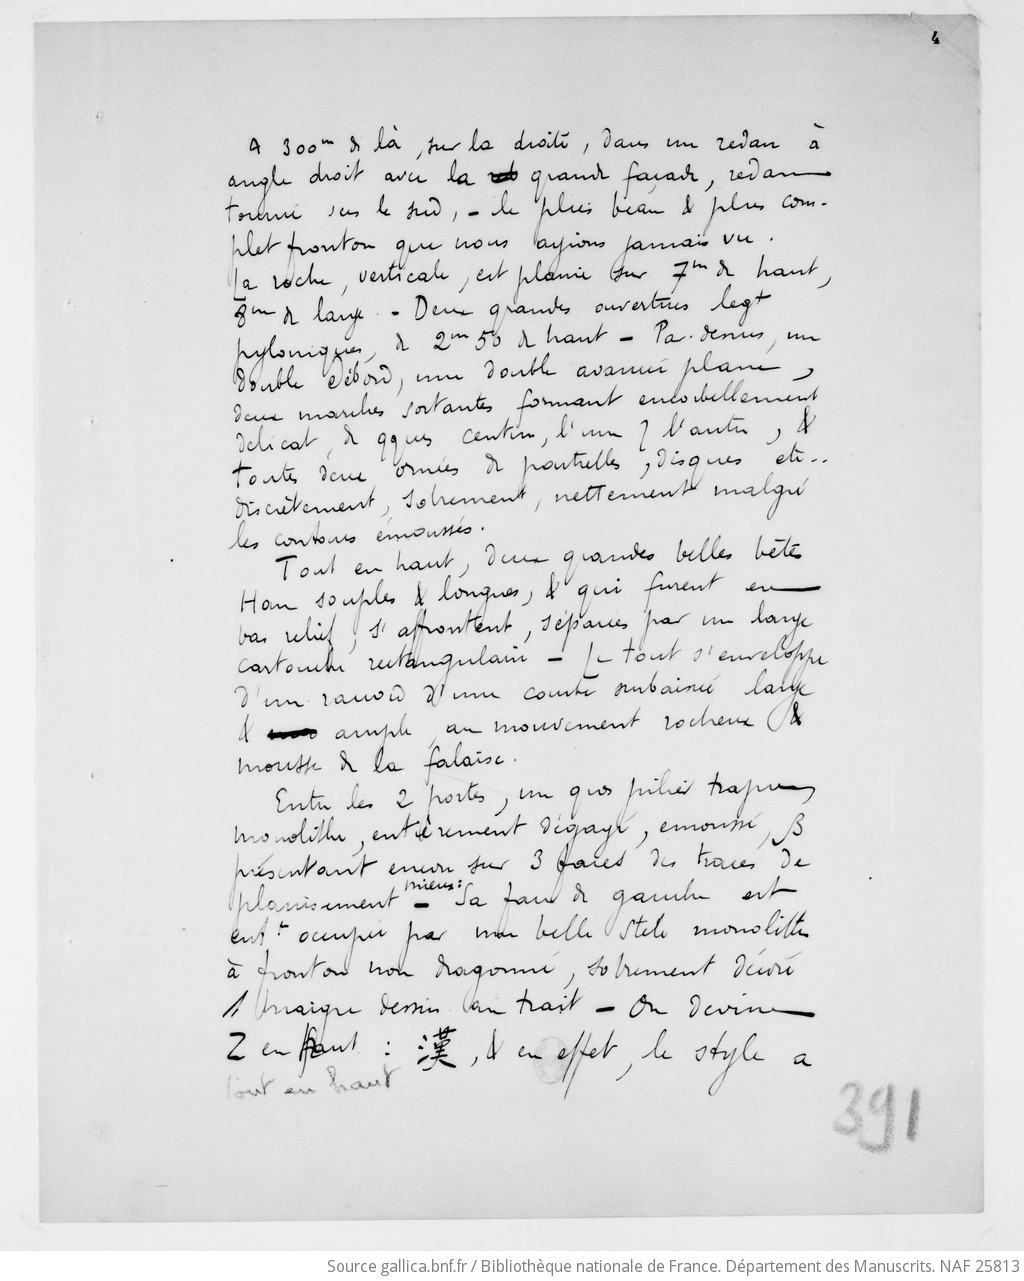 4
A 300m de là, sur la droite, dans un redan à
angle droit avec la grande façade, redan
tourné vers le sud, - le plus beau & plus com-
plet fronton que nous ayions jamais vu.
La roche, verticale, est planie sur 7m de haut,
8m de large. - Deux grandes ouvertures legt
pyloniques, de 2m 50 de haut - Par-dessus, un
double débord, une double avancée plane,
deux marches sortantes formant encorbellement
délicat, de qques centim, l'une l'autre, &
toutes deux ornées de pastilles, disques etc..
discrètement, sobrement, nettement malgré
les contours émoussés.
Tout en haut, deux grandes belles bêtes
Han souples & longues, & qui furent en
bas relief, s'affrontent, séparées par un large
cartouche rectangulaire - Le tout s'enveloppe
d'un raccord d'une courbe surbaissée large
& ample, au mouvement rocheux &
mousse de la falaise.
Entre les 2 portes, un gros pilier trapu
monolithe, entièrement dégagé, émoussé,
présentant encore sur 3 faces des traces de
planissement - mieux: Sa face de gauche est
entt occupée par une belle stèle monolithe
à fronton non dragonné, sobrement décoré
maigre dessin au trait - On devine
en haut : 漢, & en effet, le style a
tout en haut
391
Source gallica.bnf.fr / Bibliothèque nationale de France. Département des Manuscrits. NAF 25813